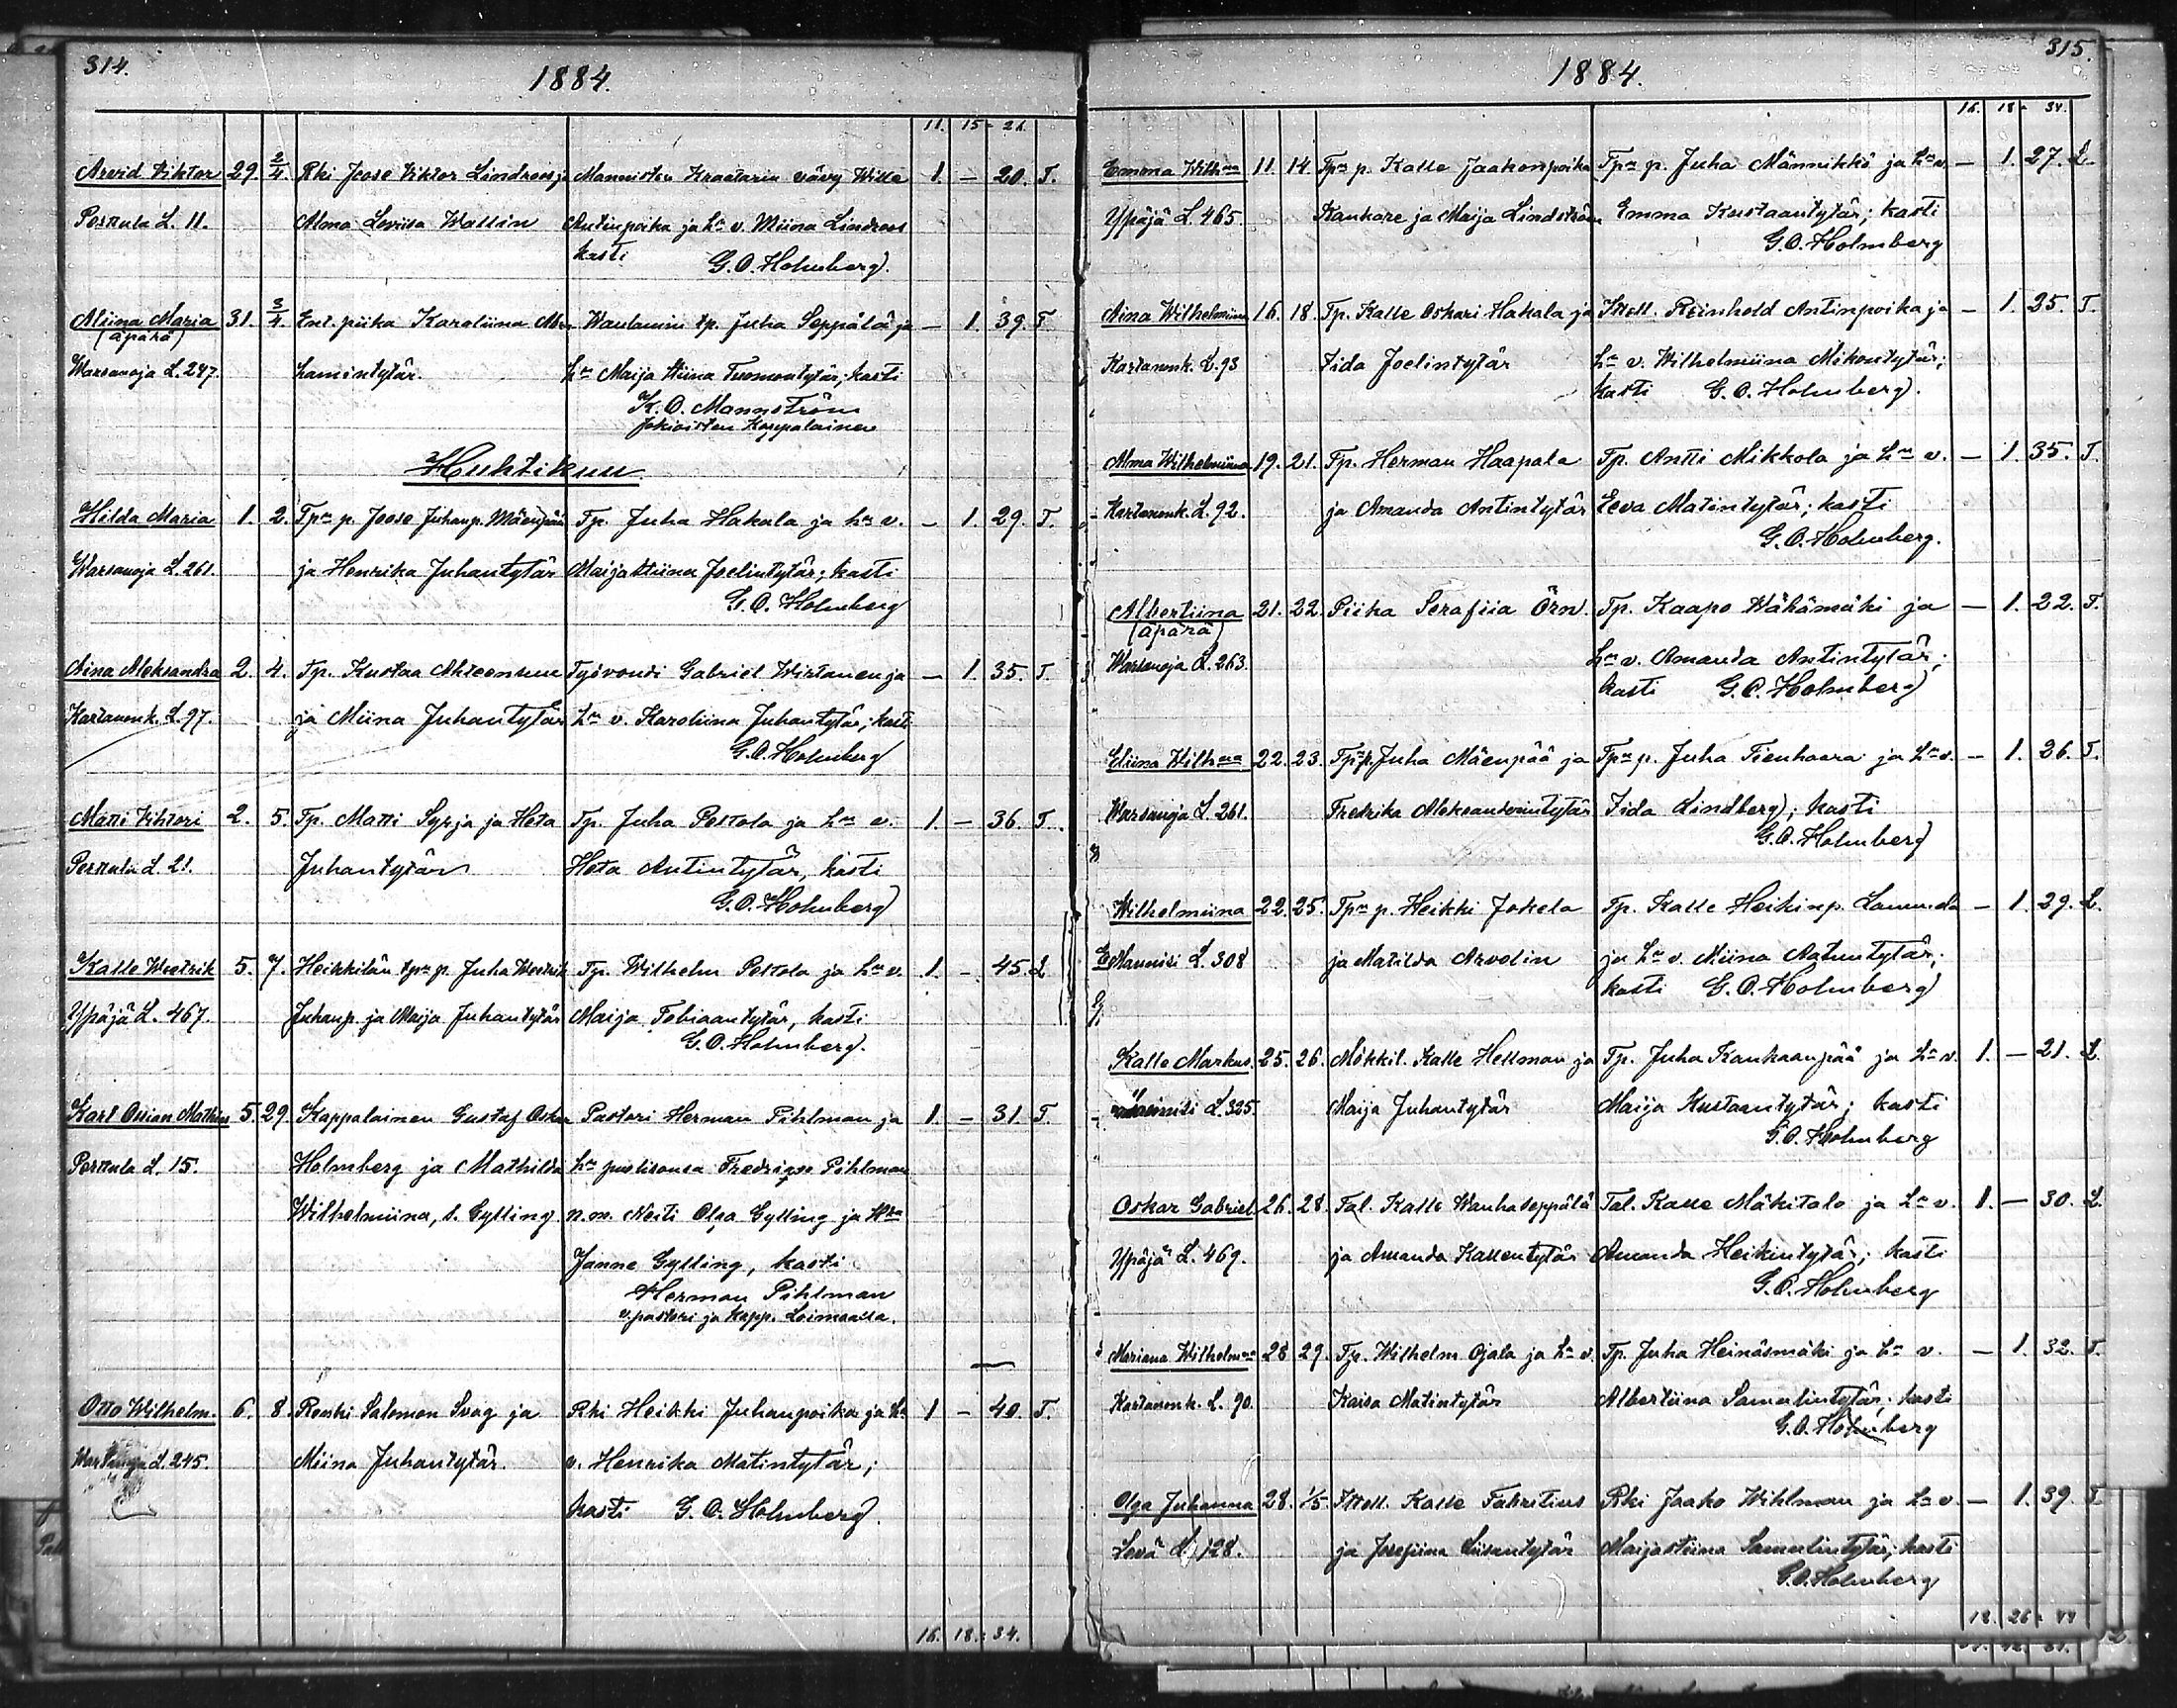 314.
1884.
11. 15 = 26.
Arvid Viktor 29. 2/4. Rki Joose Viktor Lindroos ja Mannisten Kraatarin vävy Wille 1. — 20. T.
Perttula L. 11. Alma Loviisa Wallin Antinpoika ja hra v. Miina Lindroos
kasti G. O. Holmberg.
Miina Maria 31. 3/4. Entpiika Karoliina Abra Waulamini tp. Juha Seppälä ja — 1. 39. T
(äpärä)
Warsanoja L. 247. hamintytär. hra Maija Stiina Tuomontytär; kasti
K. O. Mannström
Jokioisten Kappalainen
Huhtikuu
Hilda Maria 1. 2. Tpn p. Joose Juhanp. Mäenpää Tp. Juha Hakala ja hra v. — 1. 29. T.
Warsanoja L. 261. ja Henrika Juhantytär Maija Stiina Joelintytär; kasti
G. O. Holmberg
Aina Aleksandra 2. 4. Tp. Kustaa Ahteenkuu Työvouti Gabriel Wirtanen ja — 1. 35. T.
Kartanonk. L. 97. ja Miina Juhantytär hra v. Karoliina Juhantytär; kasti
G. O. Holmberg
Matti Vihtori 2. 5. Tp. Matti Syrja ja Heta Tp. Juha Pettola ja hra v. 1. — 36. T.
Perttula L. 21. Juhantytär Heta Antintytär, kasti
G. O. Holmberg
Kalle Weetrik 5. 7. Heikkilän tpn p. Juha Weetrik Tp. Wilhelm Peltola ja hra v. 1. — 45. L
Ypäjä L. 467. Juhanp. ja Maija Juhantytär Maija Tobiaantytär, kasti
G. O. Holmberg.
Karl Ossian Mathias 5. 29. Kappalainen Gustaf Oskar Pastori Herman Pihlman ja 1. — 31. T.
Perttula L. 15. Holmberg ja Mathilda hra puolisonsa Fredrique Pihlman
Wilhelmiina, s. Gylling n.m. Neiti Olga Gylling ja Hra
Janne Gylling, kasti
Herman Pihlman
v.pastori ja kapp. Loimaalla.
Otto Wilhelm. 6. 8. Renki Salomon Svag ja Rki Heikki Juhanpoika ja hra 1 — 40. T.
Warsanoja L. 245. Miina Juhantytär. v. Henrika Matintytär;
kasti G. O. Holmberg.
16. 18 = 34.
315.
1884.
16. 18 = 34.
Emma Wilhma 11. 14. Tpn p. Kalle Jaakonpoika Tpn p. Juha Männikkö ja hra v. — 1. 27. L.
Ypäjä L. 465. Kankare ja Maija Lindström Emma Kustaantytär; kasti
G. O. Holmberg
Aina Wilhelmiina 16. 18. Tp. Kalle Oskari Hakala ja Itsell. Reinhold Antinpoika ja — 1. 25. T.
Kartanonk. L. 93 Iida Joelintytär hra v. Wilhelmiina Mikontytär;
kasti G. O. Holmberg.
Alma Wilhelmiina 19. 21. Tp. Herman Haapala Tp. Antti Mikkola ja hra v. — 1. 35. T.
Kartanonk. L. 92. ja Amanda Antintytär Eeva Matintytär; kasti
G. O. Holmberg.
Albertiina 21. 22. Piika Serafiia Örn. Tp. Kaapo Wähämäki ja — 1. 22. T.
(äpärä)
Warsanoja L. 263. hra v. Amanda Antintytär;
kasti G. O. Holmberg
Eliina Wilhma 22. 23. Tpn p. Juha Mäenpää ja Tpn p. Juha Tienhaara ja hra v. — 1. 26. T.
Warsanoja L. 261. Fredrika Aleksanderintytär Iida Lindberg; kasti
G. O. Holmberg
Wilhelmiina 22. 25. Tpn p. Heikki Jokela Tp. Kalle Heikinp. — 1. 29. L.
Mannisi L. 308 ja Matilda Arvelin ja hra v. Miina Aatuntytär;
kasti G. O. Holmberg
Kalle Markus. 25. 26. Mökkil. Kalle Hellman ja Tp. Juha Kankaanpää ja hra v. 1. — 21. L.
L. 325 Maija Juhantytär Maija Kustaantytär; kasti
G. O. Holmberg
Oskar Gabriel 26. 28. Tal. Kalle Wanhaseppälä Tal. Kalle Mäkitalo ja hra v. 1. — 30. L.
Ypäjä L. 469. ja Amanda Kallentytär Amanda Heikintytär; kasti
G. O. Holmberg
Mariana Wilhelmna 28 29. Tp. Wilhelm Ojala ja hra v. Tp. Juha Heinäsmäki ja hra v. — 1. 32. T.
Kartanonk. L. 90. Kaisa Matintytär Albertiina Samulintytär; kasti
G. O. Holmberg
Olga Juhanna 28. 1/5 Itsell. Kalle Fabritius Rki Jaako Wihlman ja hra v. — 1. 39. T
Levä L. 128. ja Josefiina Liisantytär Maijastiina Samulintytär; kasti
G. O. Holmberg
18. 26 = 44